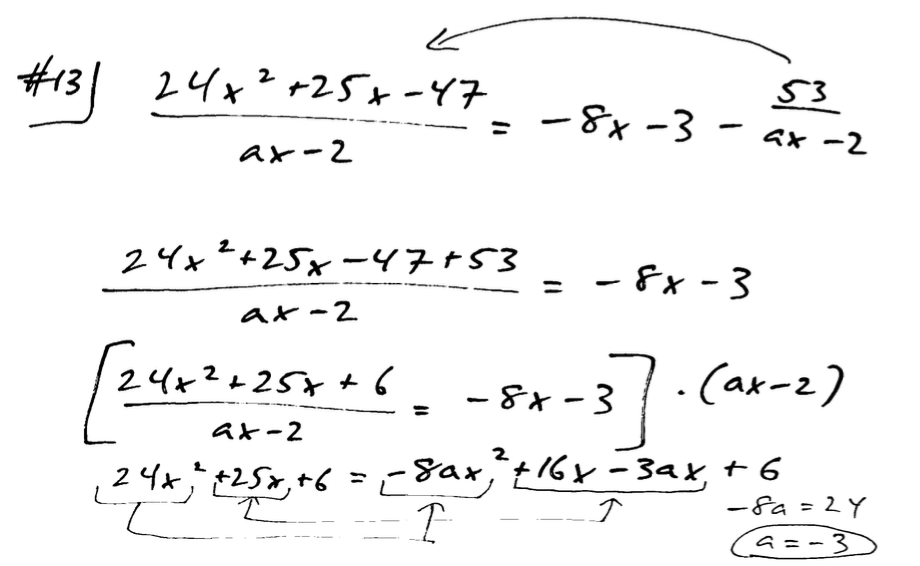 #13] (24x² + 25x - 47)/(ax - 2) = -8x - 3 - 53/(ax - 2)
(24x² + 25x - 47 + 53)/(ax - 2) = -8x - 3
[(24x² + 25x + 6)/(ax - 2) = -8x - 3] · (ax - 2)
24x² + 25x + 6 = -8ax² + 16x - 3ax + 6
-8a = 24
a = -3